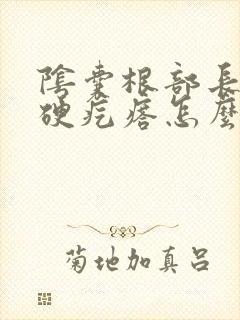 陰囊根部長
硬疙瘩怎麼
菊地加真呂